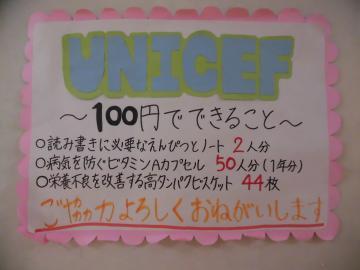 UNICEF
～100円でできること～
○読み書きに必要なえんぴつとノート 2人分
○病気を防ぐビタミンAカプセル 50人分(1年分)
○栄養不良を改善する高タンパクビスケット 44枚
ご協力よろしくおねがいします